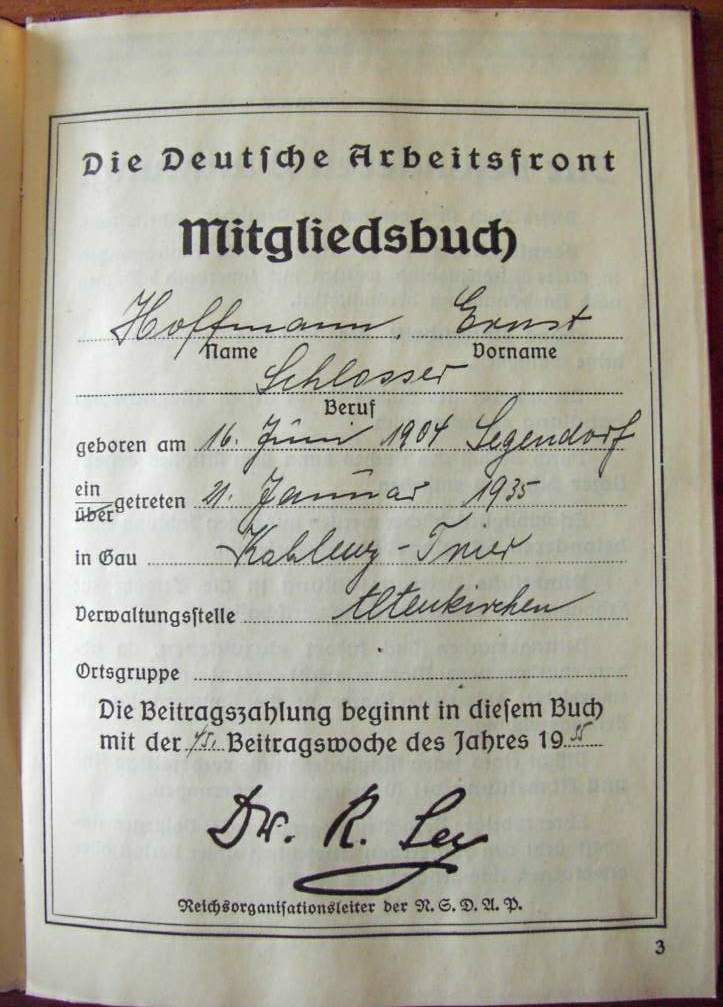 Die Deutsche Arbeitsfront
Mitgliedsbuch
Hoffmann, Ernst
Name Vorname
Schlosser
Beruf
geboren am 16. Juni 1904 Segendorf
ein
über getreten 21. Januar 1935
in Gau Koblenz-Trier
Verwaltungsstelle Altenkirchen
Ortsgruppe
Die Beitragszahlung beginnt in diesem Buch
mit der Beitragswoche des Jahres 19
Dr. R. Ley
Reichsorganisationsleiter der N.S.D.A.P.
3